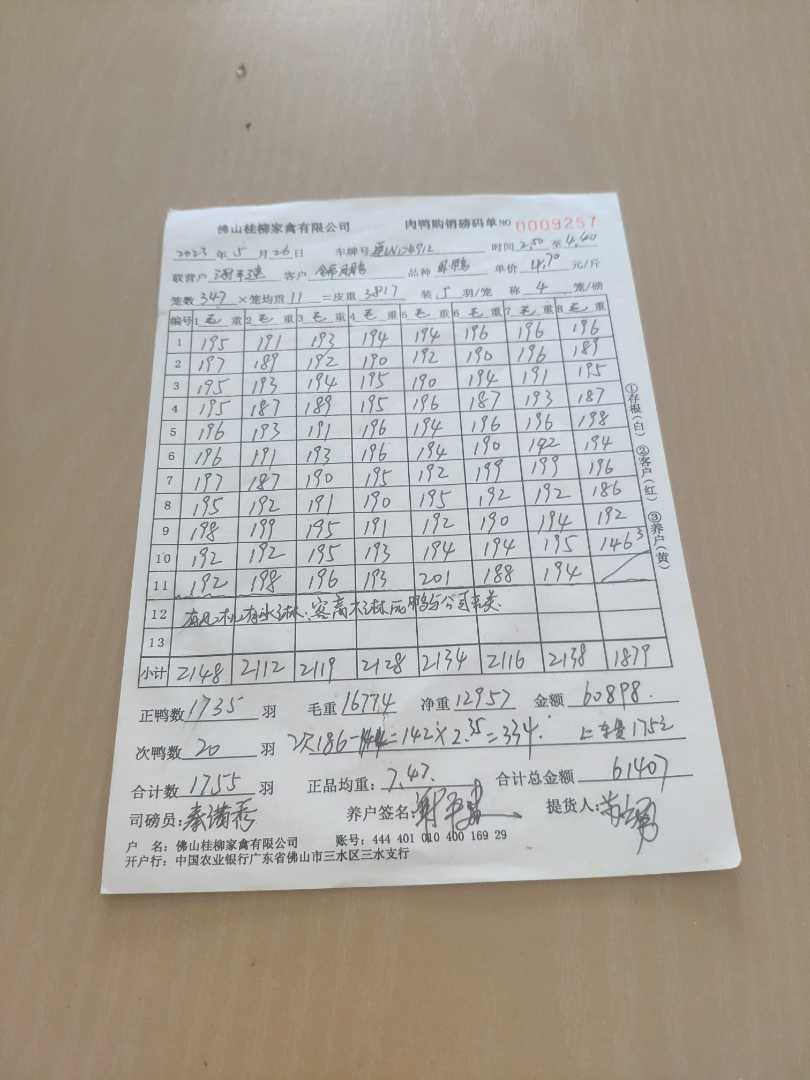 佛山桂柳家禽有限公司 肉鸭购销磅码单 NO 0009257
2023 年 5 月 26 日 车牌号 时间 2.50 至 4.40
联营户 客户 品种 单价 4.70 元/斤
笼数 347 ×笼均重 11 =皮重 3817 装 5 羽/笼 称 4 笼/磅
编号 1 毛 重 2 毛 重 3 毛 重 4 毛 重 5 毛 重 6 毛 重 7 毛 重 8 毛 重
1 195 191 193 194 194 196 196 196
2 197 189 192 190 192 190 196 189
3 195 193 194 195 190 194 191 195
4 195 187 189 195 196 187 193 187
5 196 193 191 196 194 196 196 198
6 196 191 193 196 194 190 192 194
7 197 187 190 195 192 199 199 196
8 195 192 191 190 195 192 192 186
9 198 199 195 191 192 190 194 192
10 192 192 195 193 194 194 195 146 3
11 192 198 196 193 201 188 194
12
13
小计 2148 2112 2119 2128 2134 2116 2138 1879
①存根(白) ②客户(红) ③养户(黄)
正鸭数 1735 羽 毛重 16774 净重 12957 金额 60898.
次鸭数 20 羽 次186-44=142×2.35=334. 上车费175元
合计数 1755 羽 正品均重: 7.47. 合计总金额 61407
司磅员: 秦满秀 养户签名: 提货人:
户 名: 佛山桂柳家禽有限公司 账号: 444 401 010 400 169 29
开户行: 中国农业银行广东省佛山市三水区三水支行